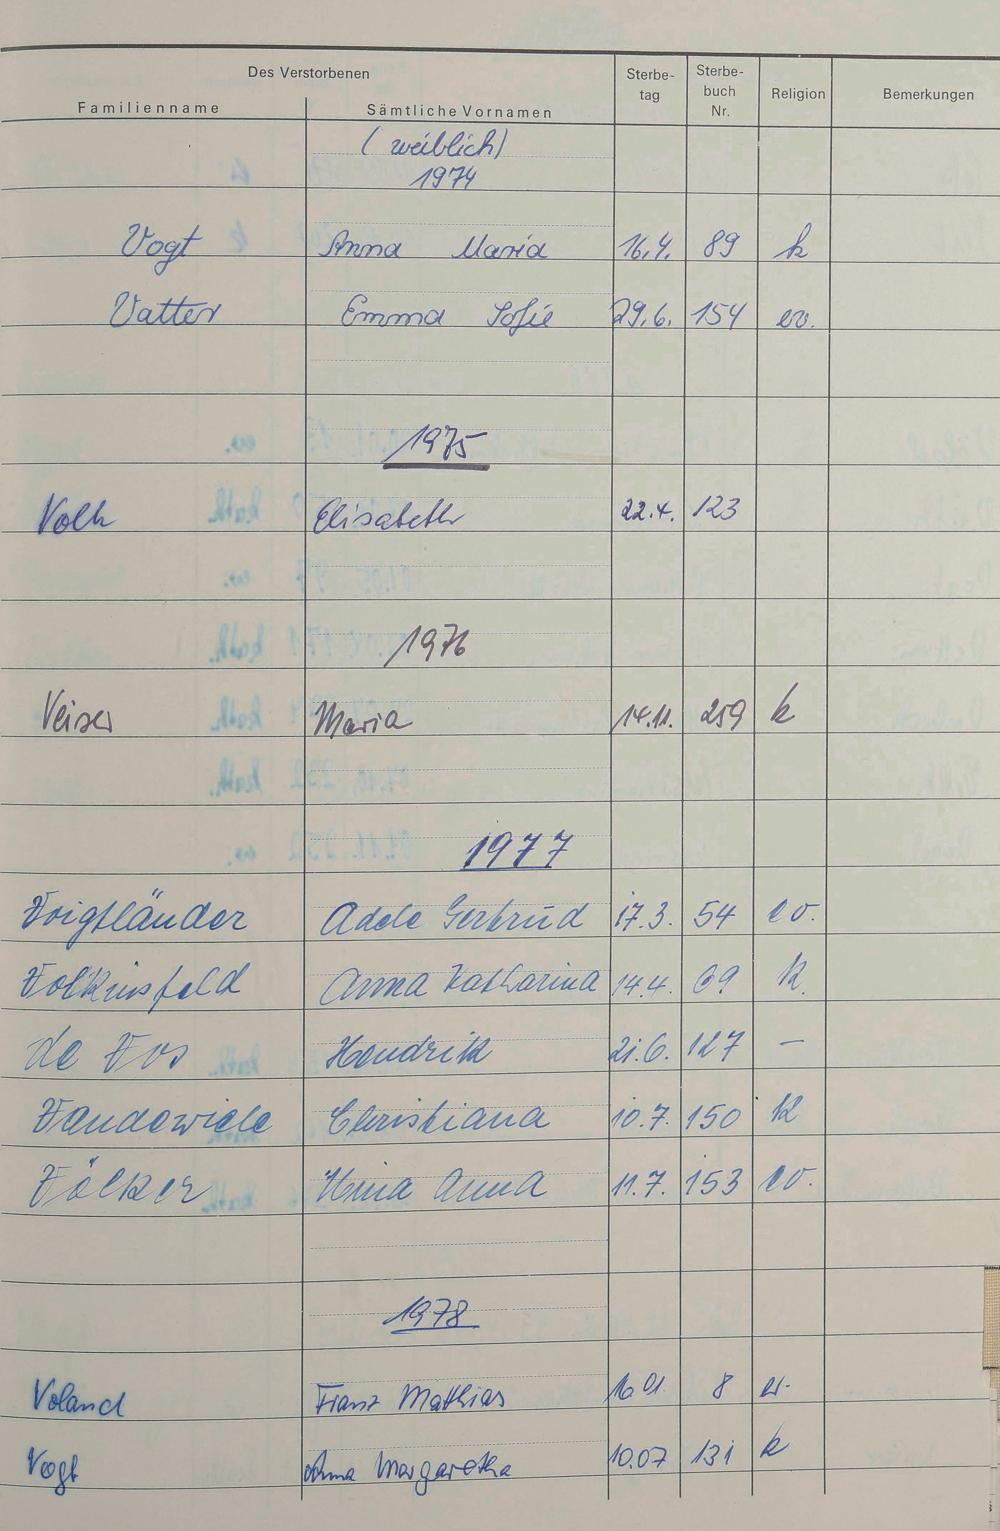 Des Verstorbenen
Familienname Sämtliche Vornamen Sterbe-tag Sterbe-buch Nr. Religion Bemerkungen
(weiblich)
1974
Vogt Anna Maria 16.4. 89 k
Vatter Emma Sofie 29.6. 154 ev.
1975
Volk Elisabeth 22.4. 123
1976
Veiser Maria 14.11. 259 k
1977
Voigtländer Adele Gertrud 17.3. 54 ev.
Anna Katharina 14.4. 69 k.
de Vos Hendrik 21.6. 127 —
Vandewiele Christiana 10.7. 150 k
Völker Anna 11.7. 153 ev.
1978
Voland Franz Matthias 16 01. 8 ev.
Vogt Anna Margaretha 10.07 131 k